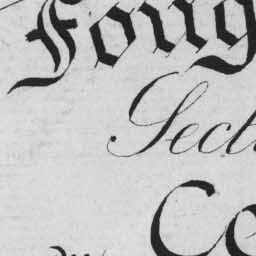 Foug
Sect
Co